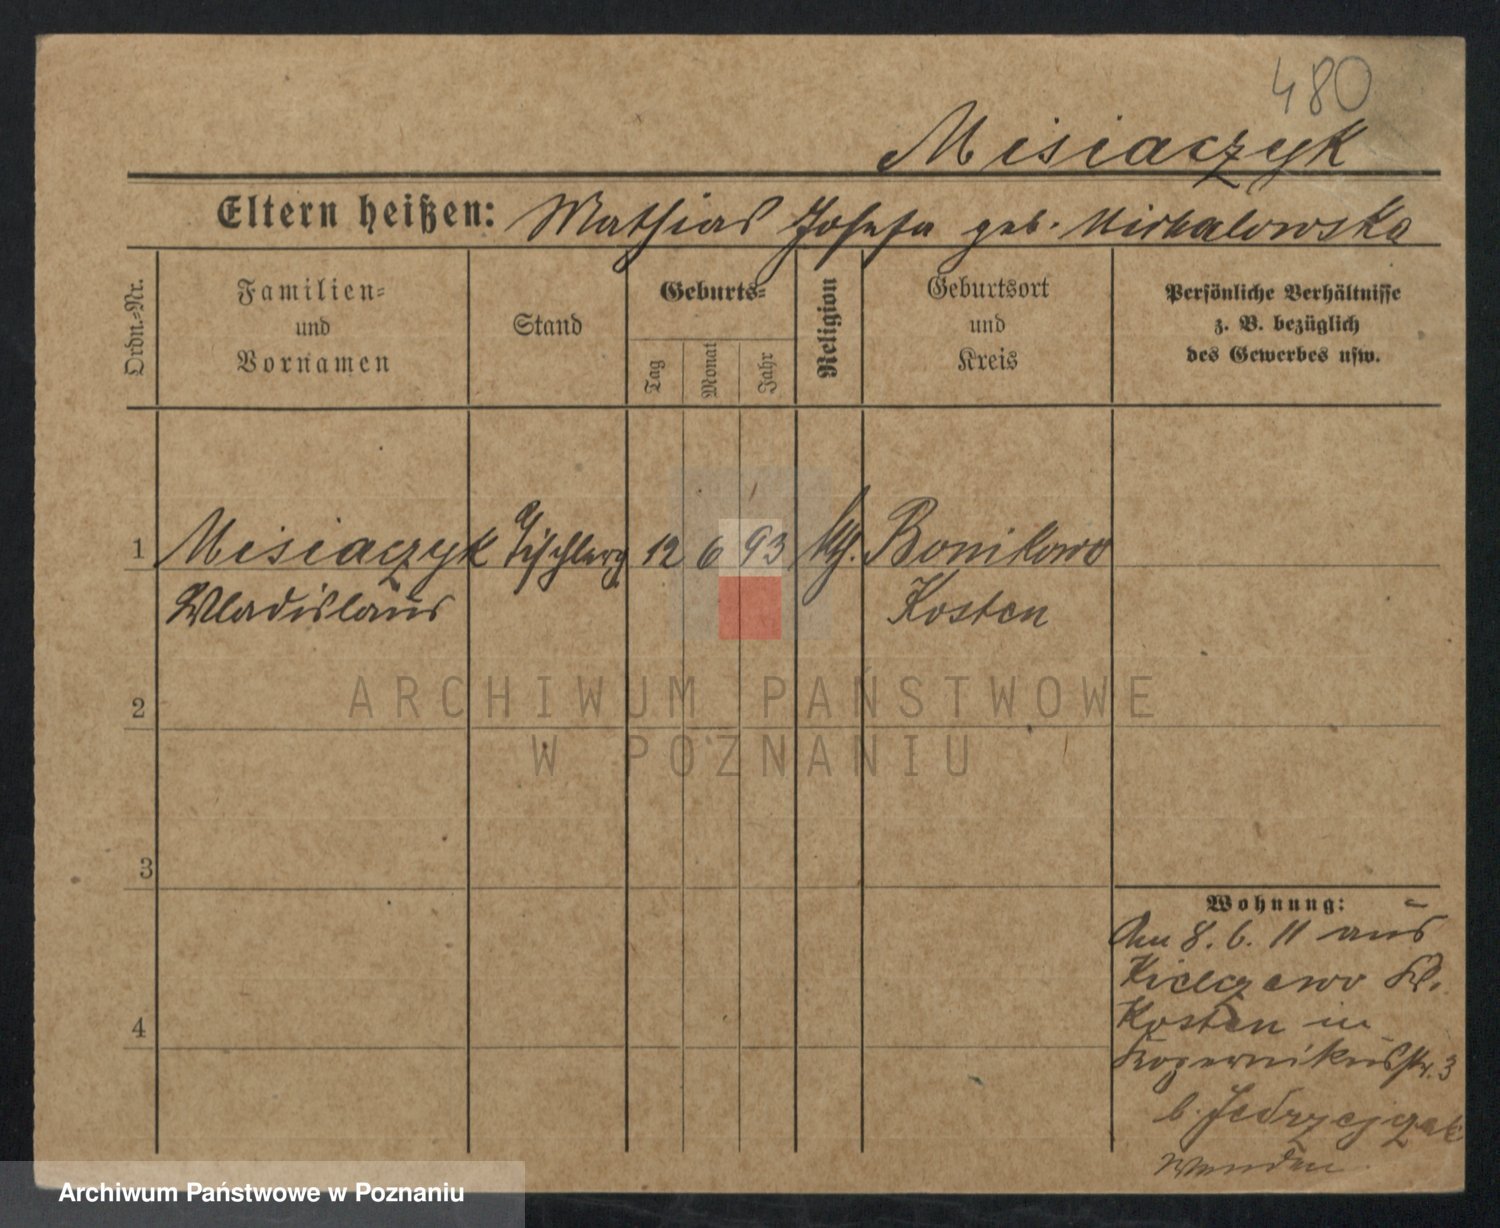 480
Misiaczyk
Eltern heißen: Mathias Josefa geb. Michalowska
Ordn.-Nr.
Familien-
und
Vornamen
Stand
Geburts-
Tag
Monat
Jahr
Religion
Geburtsort
und
Kreis
Persönliche Verhältnisse
z. B. bezüglich
des Gewerbes usw.
1 Misiaczyk Tischlerg 12 6 93 kth. Bonikowo
Wladislaus Kosten
2
3
4
Wohnung:
Am 8. 6. 11 aus
Kielczewo Kr.
Kosten in
Kopernikusstr. 3
b. Jedrzejczak
ARCHIWUM PAŃSTWOWE
W POZNANIU
Archiwum Państwowe w Poznaniu